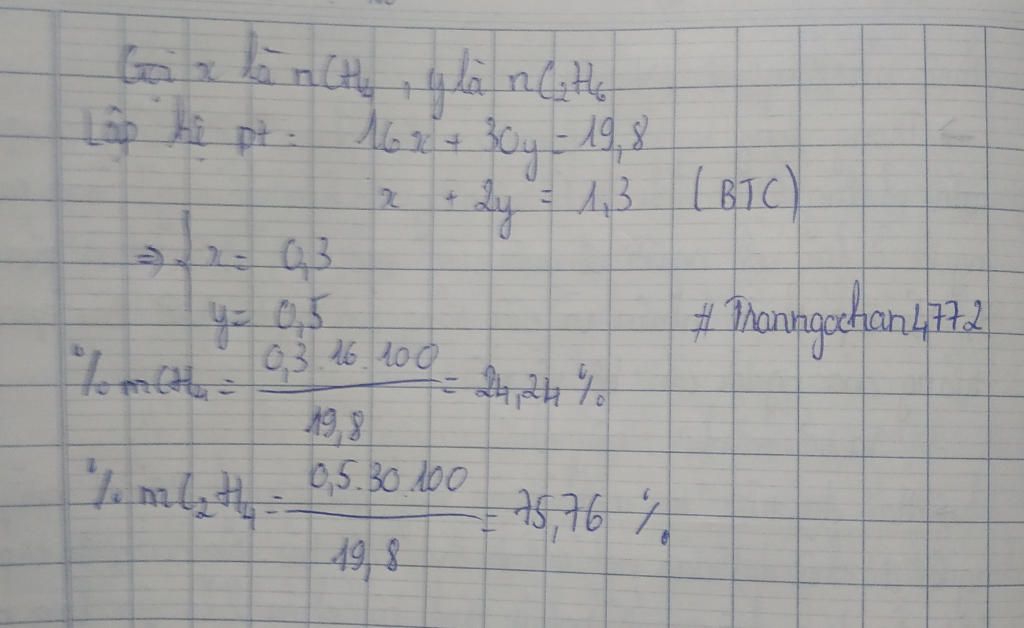 Gọi x là nCH₄, y là nC₂H₆
Lập hệ pt: 16x + 30y = 19,8
x + 2y = 1,3 (BTC)
⇒ { x = 0,3
y = 0,5
# Thanngochan4772
% mCH₄ = 0,3.16.100 / 19,8 = 24,24 %
% mC₂H₄ = 0,5.30.100 / 19,8 = 75,76 %